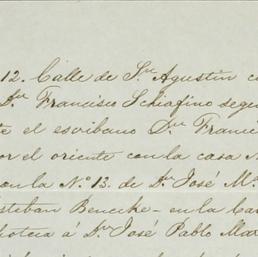 12. Calle de Sn. Agustin c
Dn. Francisco Schiafino segu
te el escribano Dn. Franci
or el oriente con la casa N
con la No. 13. de Dn. José Ma.
Esteban Benecke - en la Ca
poteca á Dn. José Pablo Mar